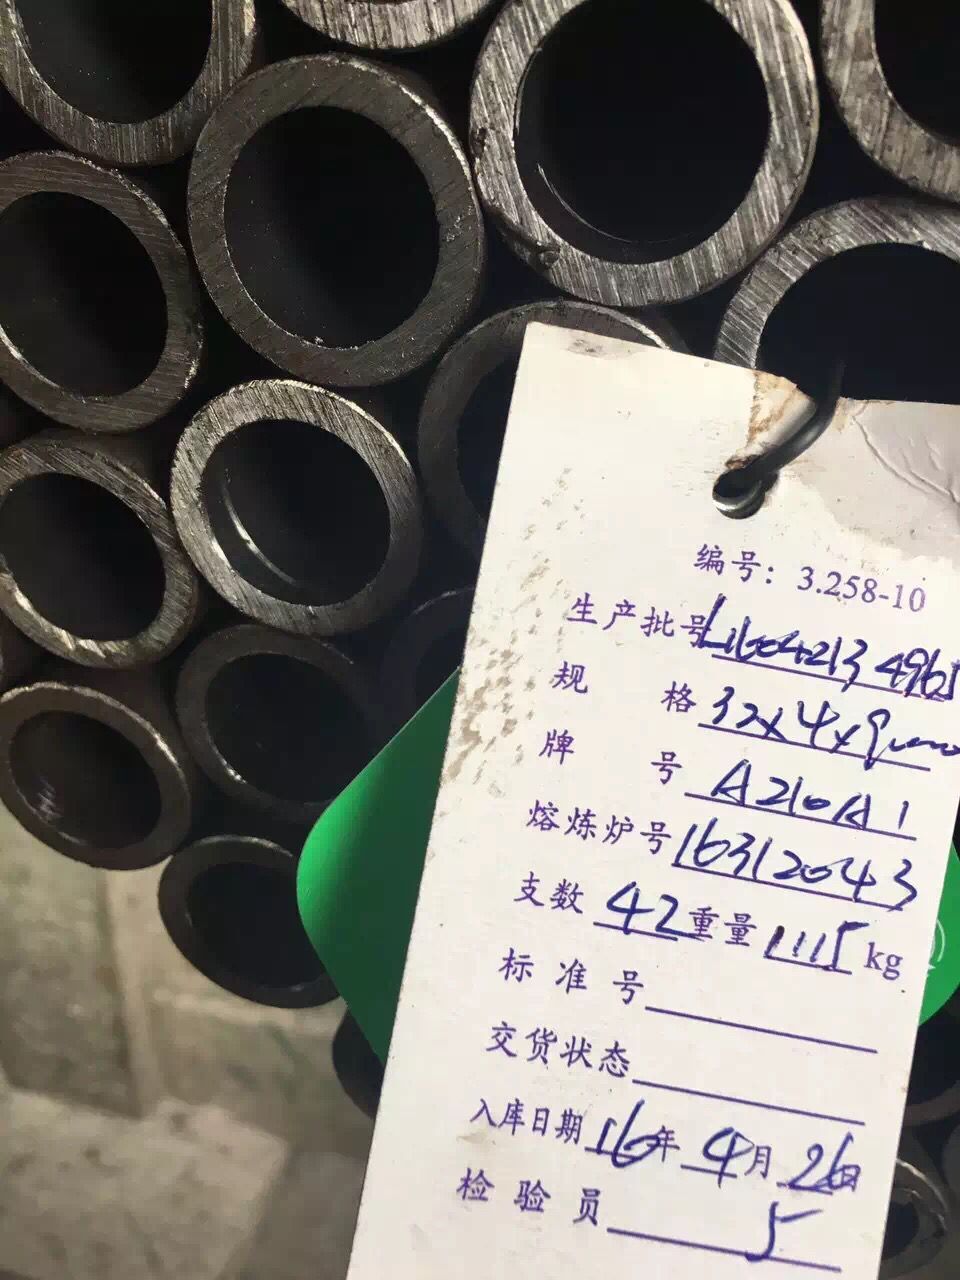 编号：3.258-10
生产批号 L16042134965
规 格 32x4x9
牌 号 A210A1
熔炼炉号 16312043
支数 42 重量 1115 kg
标 准 号
交货状态
入库日期 16年 4月 26日
检 验 员 5